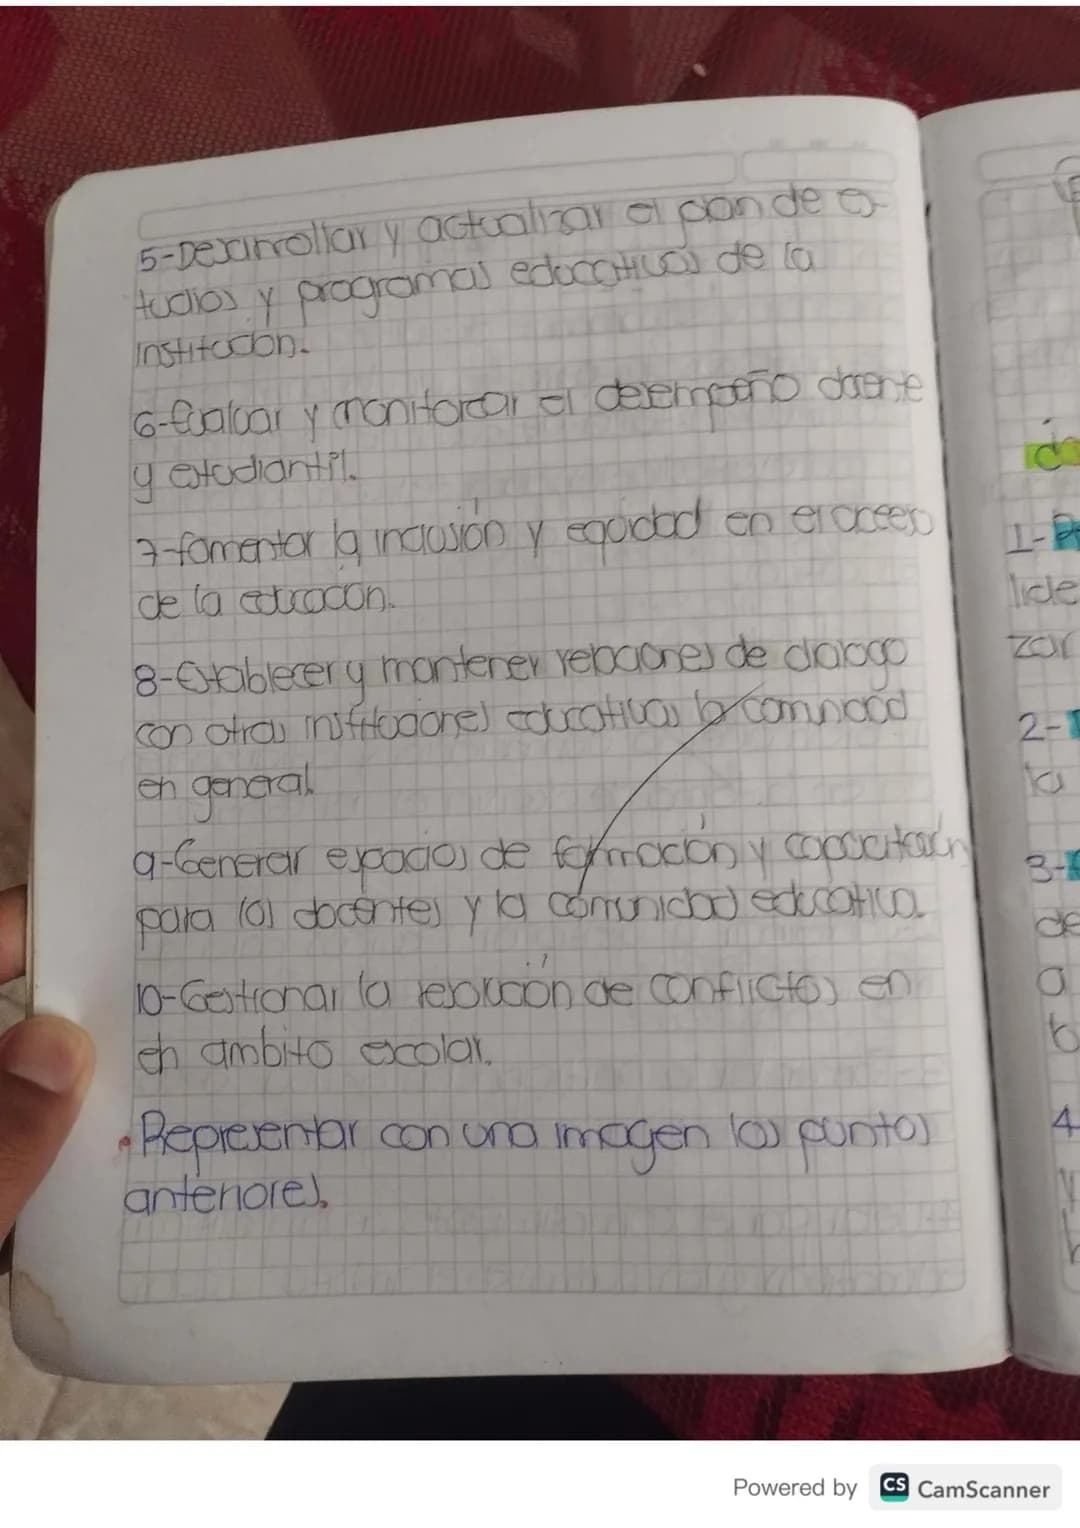 5-Desarrollar y actualizar el plan de es
tudios y programas educativos de la
institución.
6-Evaluar y monitorear el desempeño docente
y estudiantil.
7-fomentar la inclusión y equidad en el acceso
de la educación.
8-Establecer y mantener relaciones de dialogo
con otras instituciones educativas la comunidad
en general.
9-Generar espacios de formación y capacitación
para los docentes y la comunidad educativa.
10-Gestionar la resolución de conflictos en
eh ambito escolar.
• Representar con una imagen los puntos
anteriores.
1-
lide
zar
2-
la
3-
de
a
4-
y
Powered by CS CamScanner